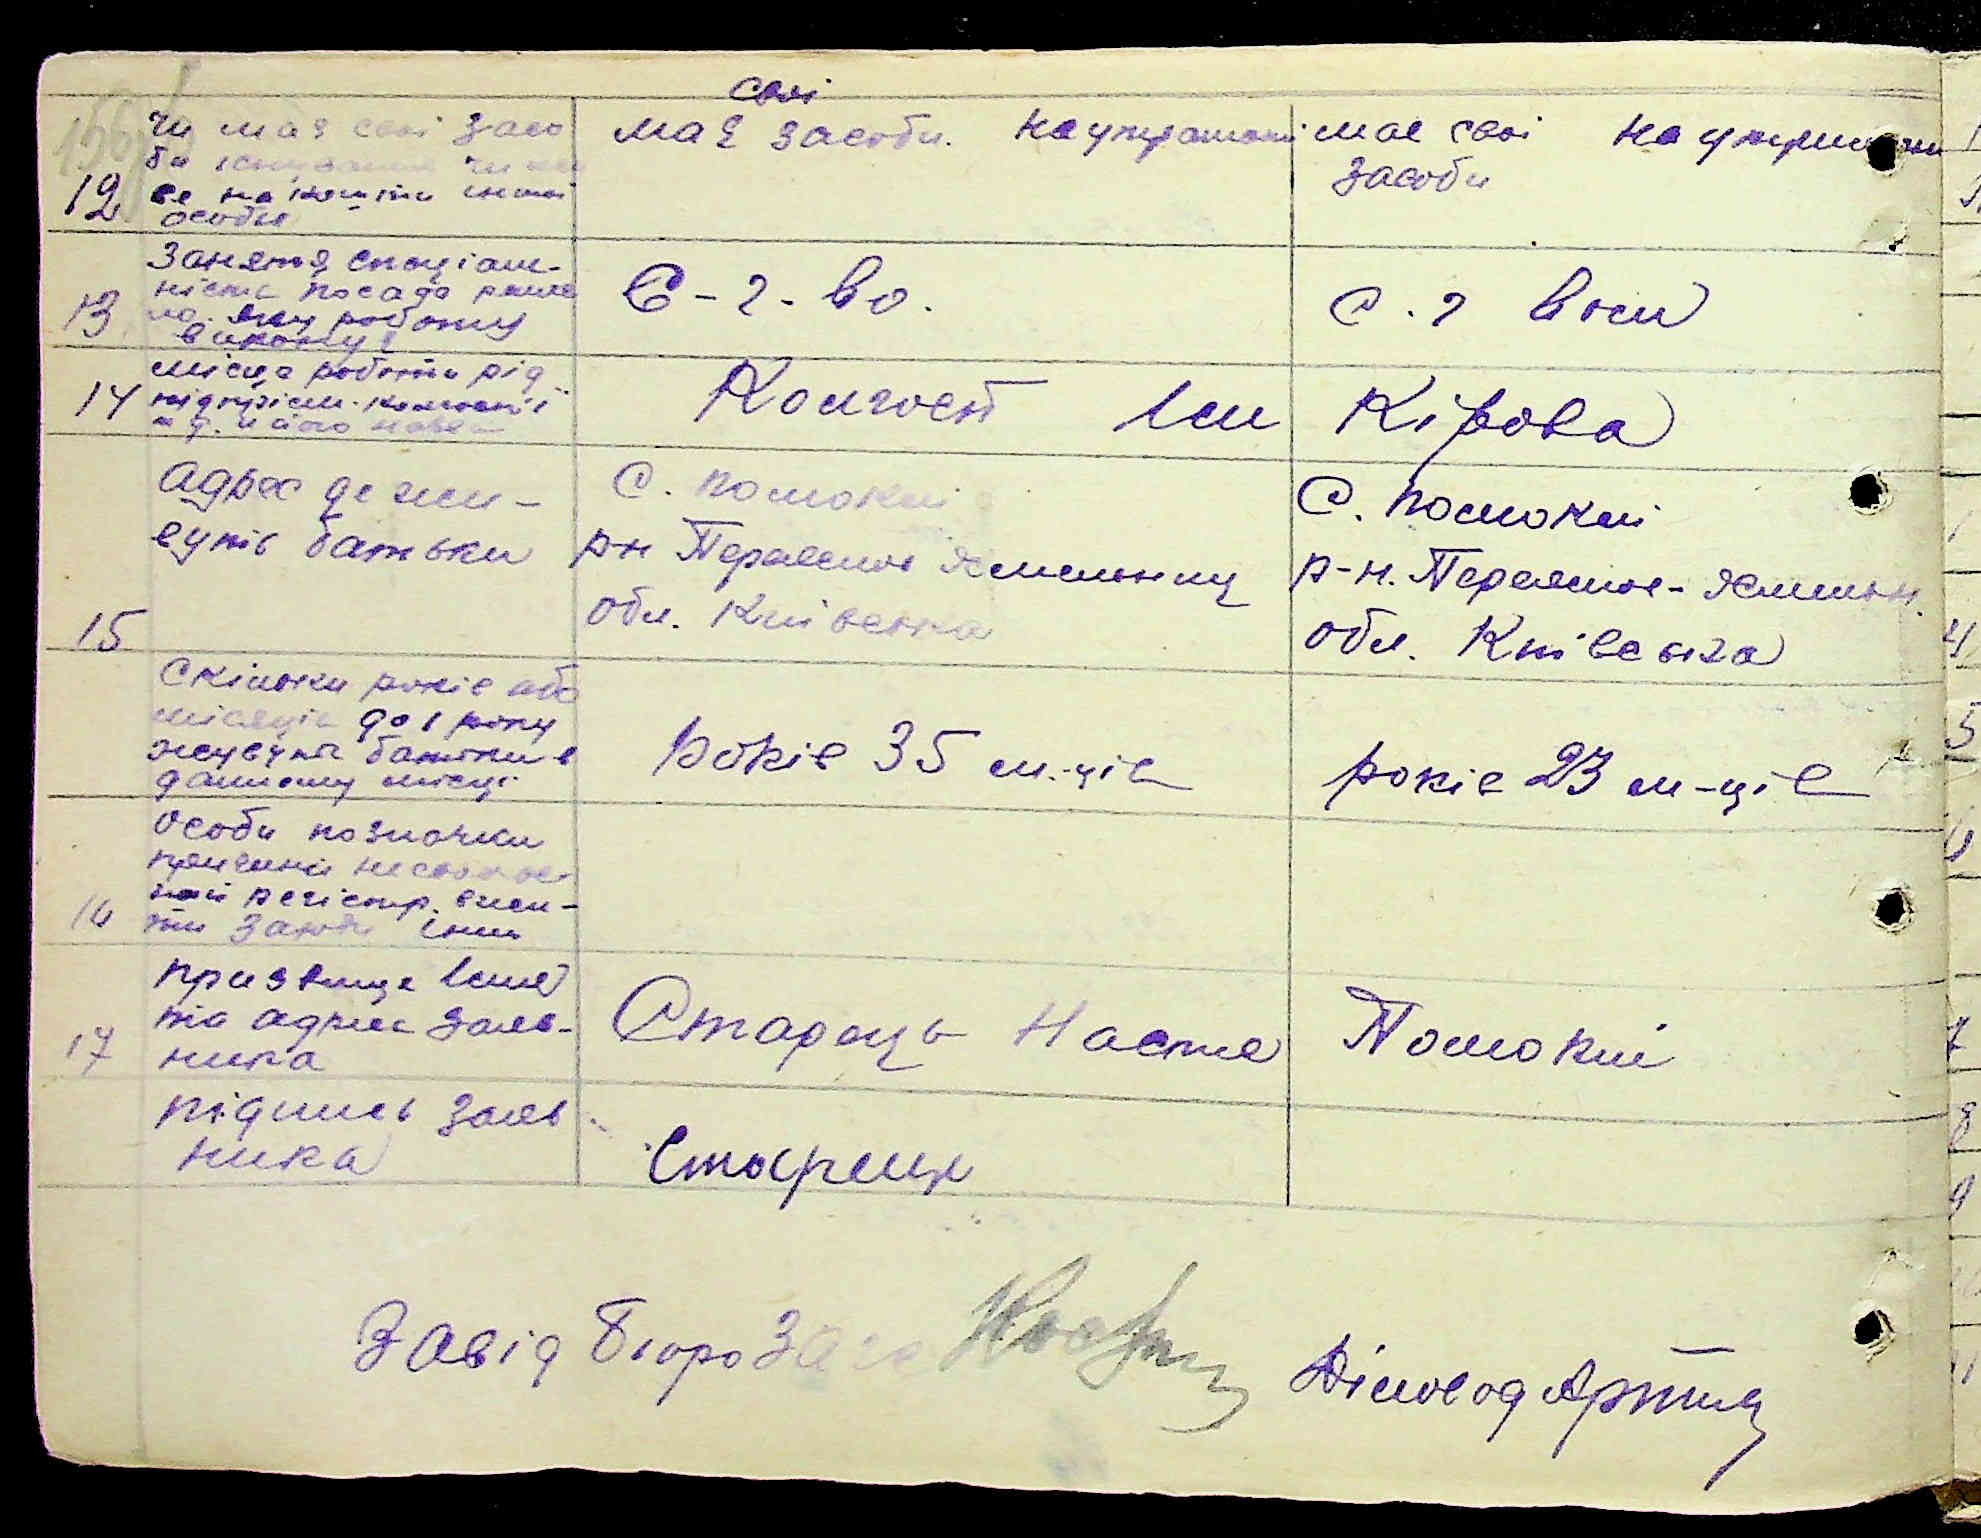 свої
12 чи має свої засо
би існування чи жи
ве на кошти иншої
особи
має засоби. на утриманні
має свої на утриманні
засоби
13 Заняття спеціаль-
ність посада ремес
ло. яку роботу
виконує
С-г-во.
с. г воги
14 місце роботи
підприєм. колгосп і
т. д. й його назва
Колгосп Ім Кірова
15 Адрес де жи-
вуть батьки
С. Помоклі
р-н Переяслов Хмельниц
обл. Київська
С. Помоклі
р-н. Переяслов-Хмельн.
обл. Київська
Скільки років або
місяців до 1 року
живуть батьки в
данному місці
років 35 м.-ців
років 23 м-ців
16 Особи позначки
причини несвоєчас
ної регістр.
17 Призвище Імя
та адрес заяв-
ника
Старець Настя Помоклі
підпись заяв
ника
Старець
Завід бюро Загс
Діловод